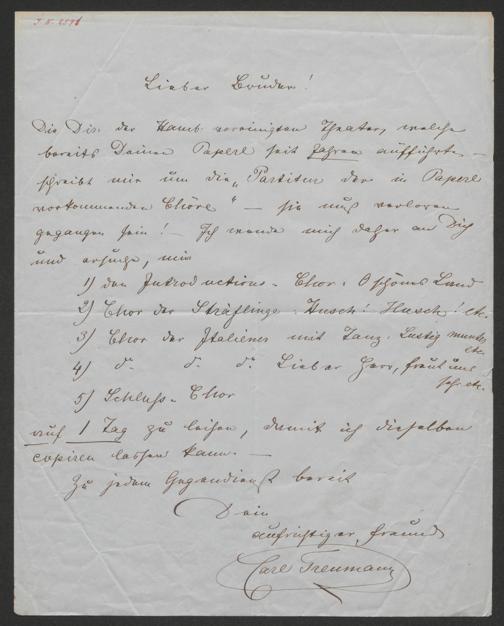 Lieber Bruder!
Die Dir. der Hamb. vereinigten Theater, welche
bereits Deinen Paperl seit Jahren aufführte –
schreibt mir um die „Partitur der in Paperl
vorkommenden Chöre" – sie muß verloren
gegangen sein! – Ich wende mich daher an Dich
und ersuche, mir
1) den Introductions-Chor: O schönes Land
2) Chor der Sträflinge: Husch! Husch! etc.
3) Chor der Italiener mit Tanz: Lustig munter etc.
4) do. do. do. Lieber Herr, freut uns sehr etc.
5) Schluss-Chor
auf 1 Tag zu leihen, damit ich dieselben
copiren lassen kann. –
Zu jedem Gegendienst bereit
Dein
aufrichtiger Freund
Carl Treumann